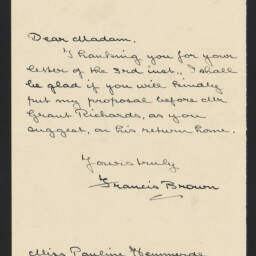 Dear Madam.
Thanking you for your
letter of the 3rd inst., I shall
be glad if you will kindly
put my proposal before Mr
Grant Richards, as you
suggest, on his return home.
Yours truly
Francis Brown
Miss Pauline Hemmerde